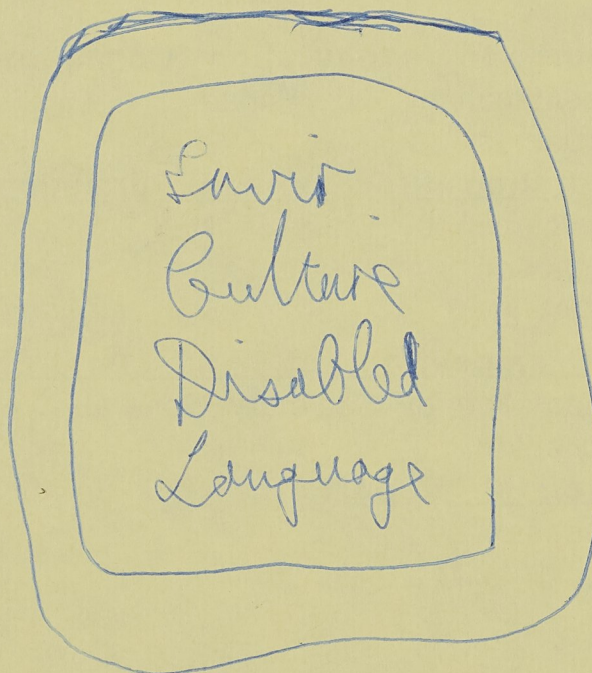 Envir
Culture
Disabled
Language